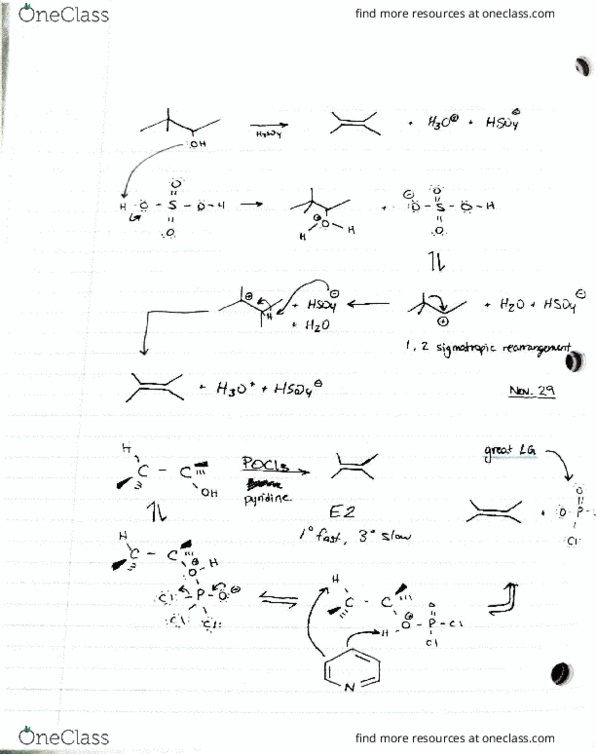 OneClass
find more resources at oneclass.com
OH
H₂SO₄
+ H₃O⊕ + HSO₄⊖
H - O - S - O - H
O
O
⊕O
H H
+ ⊖O - S - O - H
O
O
⊕ H + HSO₄⊖
+ H₂O
⊕ + H₂O + HSO₄⊖
1, 2 sigmatropic rearrangement
+ H₃O⁺ + HSO₄⊖
Nov. 29
H
C - C
OH
POCl₃
pyridine
E2
1° fast, 3° slow
great LG
+ O P
O
Cl
H
C - C
O⊕ H
Cl P - O⊖
Cl Cl
H
C - C
H - O⊕ - P - Cl
O
Cl
N
OneClass
find more resources at oneclass.com